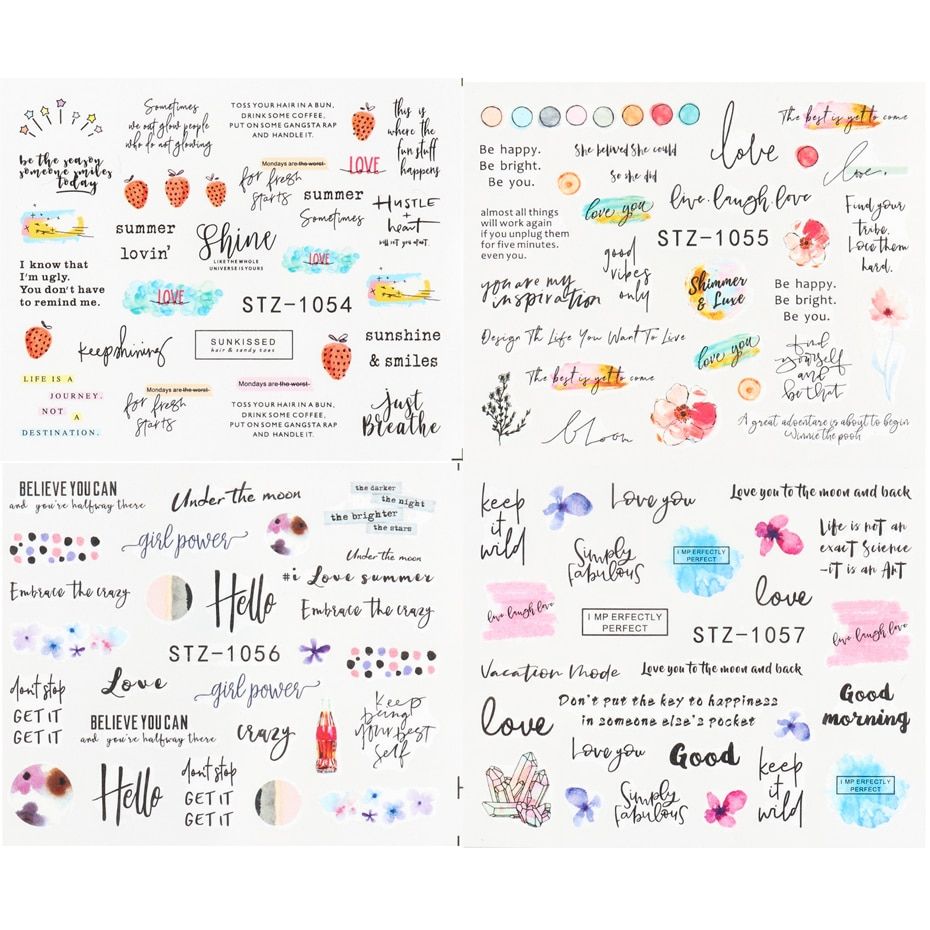 Sometimes
we out glow people
who do not glowing
TOSS YOUR HAIR IN A BUN,
DRINK SOME COFFEE,
PUT ON SOME GANGSTA RAP
AND HANDLE IT.
this is
where the
fun stuff
happens
be the season
someone smiles
today
Mondays are the worst
for fresh
starts
LOVE
summer
Sometimes
HUSTLE
+
heart
will set you apart.
summer
lovin'
Shine
LIKE THE WHOLE
UNIVERSE IS YOURS
LOVE
I know that
I'm ugly.
You don't have
to remind me.
LOVE
STZ-1054
keep shining
SUNKISSED
hair & sandy toes
sunshine
& smiles
LIFE IS A
JOURNEY.
NOT A
DESTINATION.
Mondays are the worst
for fresh
starts
Mondays are the worst
TOSS YOUR HAIR IN A BUN,
DRINK SOME COFFEE,
PUT ON SOME GANGSTA RAP
AND HANDLE IT.
just
Breathe
The best is yet to come
Be happy.
Be bright.
Be you.
She belived She could
So she did
love
love.
almost all things
will work again
if you unplug them
for five minutes.
even you.
love you
live.laugh.love
STZ-1055
Find your
tribe.
Love them
hard.
good
vibes
only
you are my
inspiration
Shimmer
& Luxe
Be happy.
Be bright.
Be you.
Design Th Life You Want To Live
love you
find
yourself
and
be that
The best is yet to come
bloom
A great adventure is about to begin
Winnie the pooh
BELIEVE YOU CAN
and you're halfway there
Under the moon
the darker
the night
the brighter
the stars
girl power
Under the moon
#i Love summer
Embrace the crazy
Hello
Embrace the crazy
STZ-1056
dont stop
GET IT
GET IT
Love
girl power
BELIEVE YOU CAN
and you're halfway there
crazy
keep
being
your best
self
Hello
dont stop
GET IT
GET IT
keep
it
wild
Love you
Love you to the moon and back
Simply
fabulous
I MP ERFECTLY
PERFECT
Life is not an
exact Science
-it is an Art
love
live laugh love
I MP ERFECTLY
PERFECT
STZ-1057
live laugh love
Vacation Mode
Love you to the moon and back
love
Don't put the key to happiness
in someone else's pocket
Good
morning
Love you
Good
keep
it
wild
Simply
fabulous
I MP ERFECTLY
PERFECT